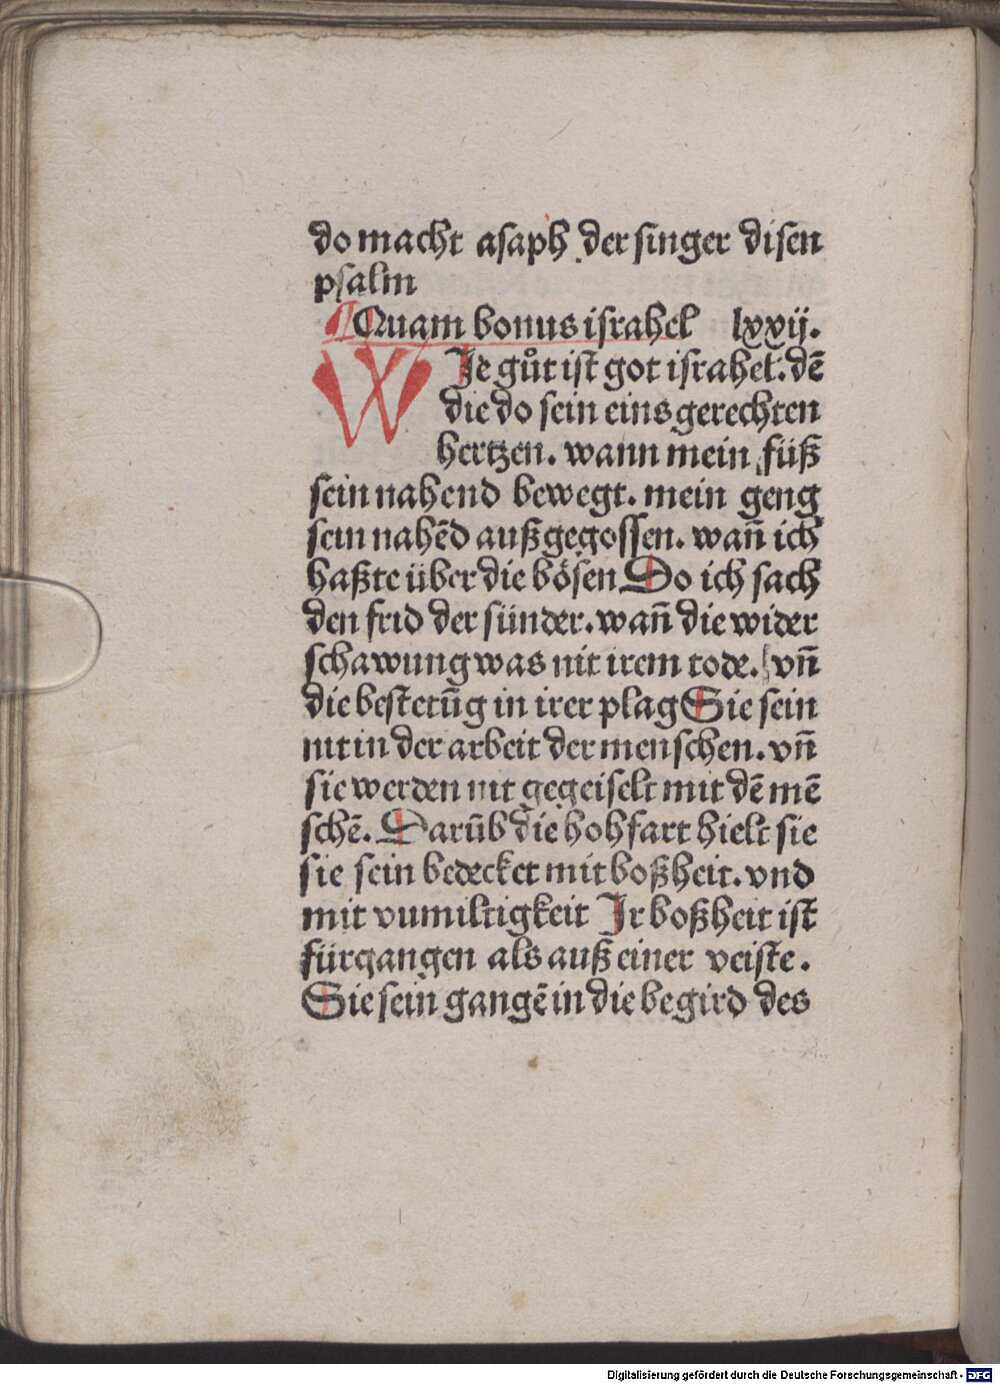 do macht asaph der singer disen
psalm
¶ Quam bonus israhel lxxij.
WJe gůt ist got israhel. dē
die do sein eins gerechten
hertzen. wann mein füß
sein nahend bewegt. mein geng
sein nahēd außgegossen. wañ ich
haßte über die bösen Do ich sach
den frid der sünder. wañ die wider
schawung was nit irem tode. vñ
die bestetūg in irer plag Sie sein
nit in der arbeit der menschen. vñ
sie werden nit gegeiselt mit dē mē
schē. Darūb die hohfart hielt sie
sie sein bedecket mit boßheit. vnd
mit vnmiltigkeit Jr boßheit ist
fürgangen als auß einer veiste.
Sie sein gangē in die begird des
Digitalisierung gefördert durch die Deutsche Forschungsgemeinschaft - DFG